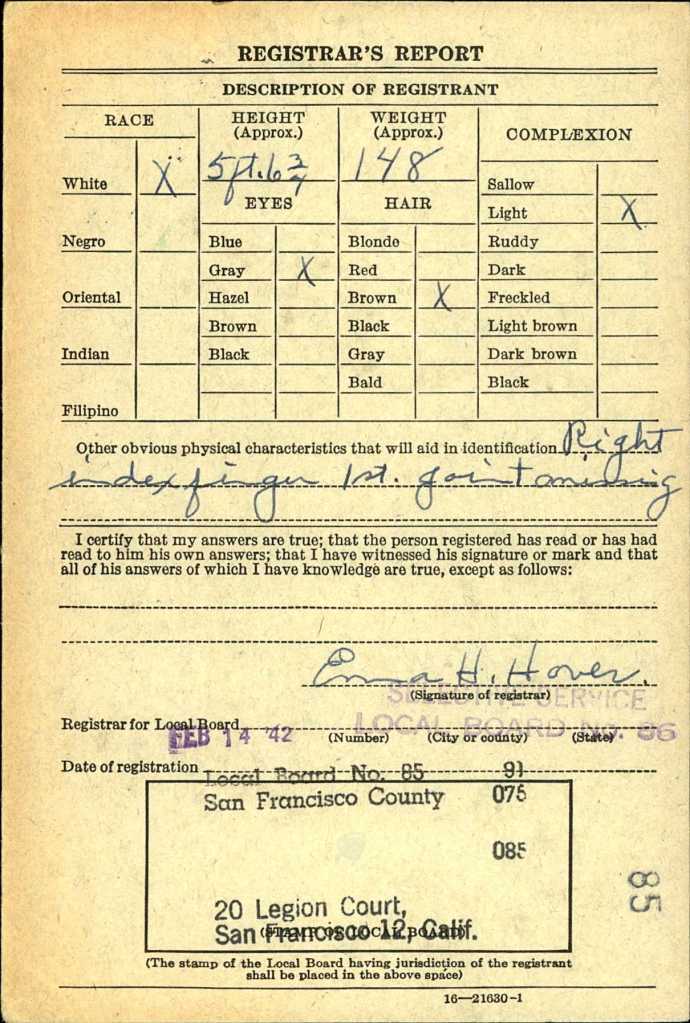 REGISTRAR'S REPORT
DESCRIPTION OF REGISTRANT
RACE
HEIGHT (Approx.)
WEIGHT (Approx.)
COMPLEXION
5 ft. 6 3/4
148
White X
EYES
HAIR
Sallow
Light X
Negro
Blue
Blonde
Ruddy
Gray X
Red
Dark
Oriental
Hazel
Brown X
Freckled
Brown
Black
Light brown
Indian
Black
Gray
Dark brown
Bald
Black
Filipino
Other obvious physical characteristics that will aid in identification Right
index finger 1st. joint missing
I certify that my answers are true; that the person registered has read or has had
read to him his own answers; that I have witnessed his signature or mark and that
all of his answers of which I have knowledge are true, except as follows:
Emma H. Hover.
(Signature of registrar)
SELECTIVE SERVICE
Registrar for Local Board
LOCAL BOARD NO. 86
FEB 14 '42
(Number) (City or county) (State)
Date of registration
Local Board No. 85 91
San Francisco County 075
085
85
20 Legion Court,
San Francisco 12, Calif.
(STAMP OF LOCAL BOARD)
(The stamp of the Local Board having jurisdiction of the registrant
shall be placed in the above space)
16—21630-1